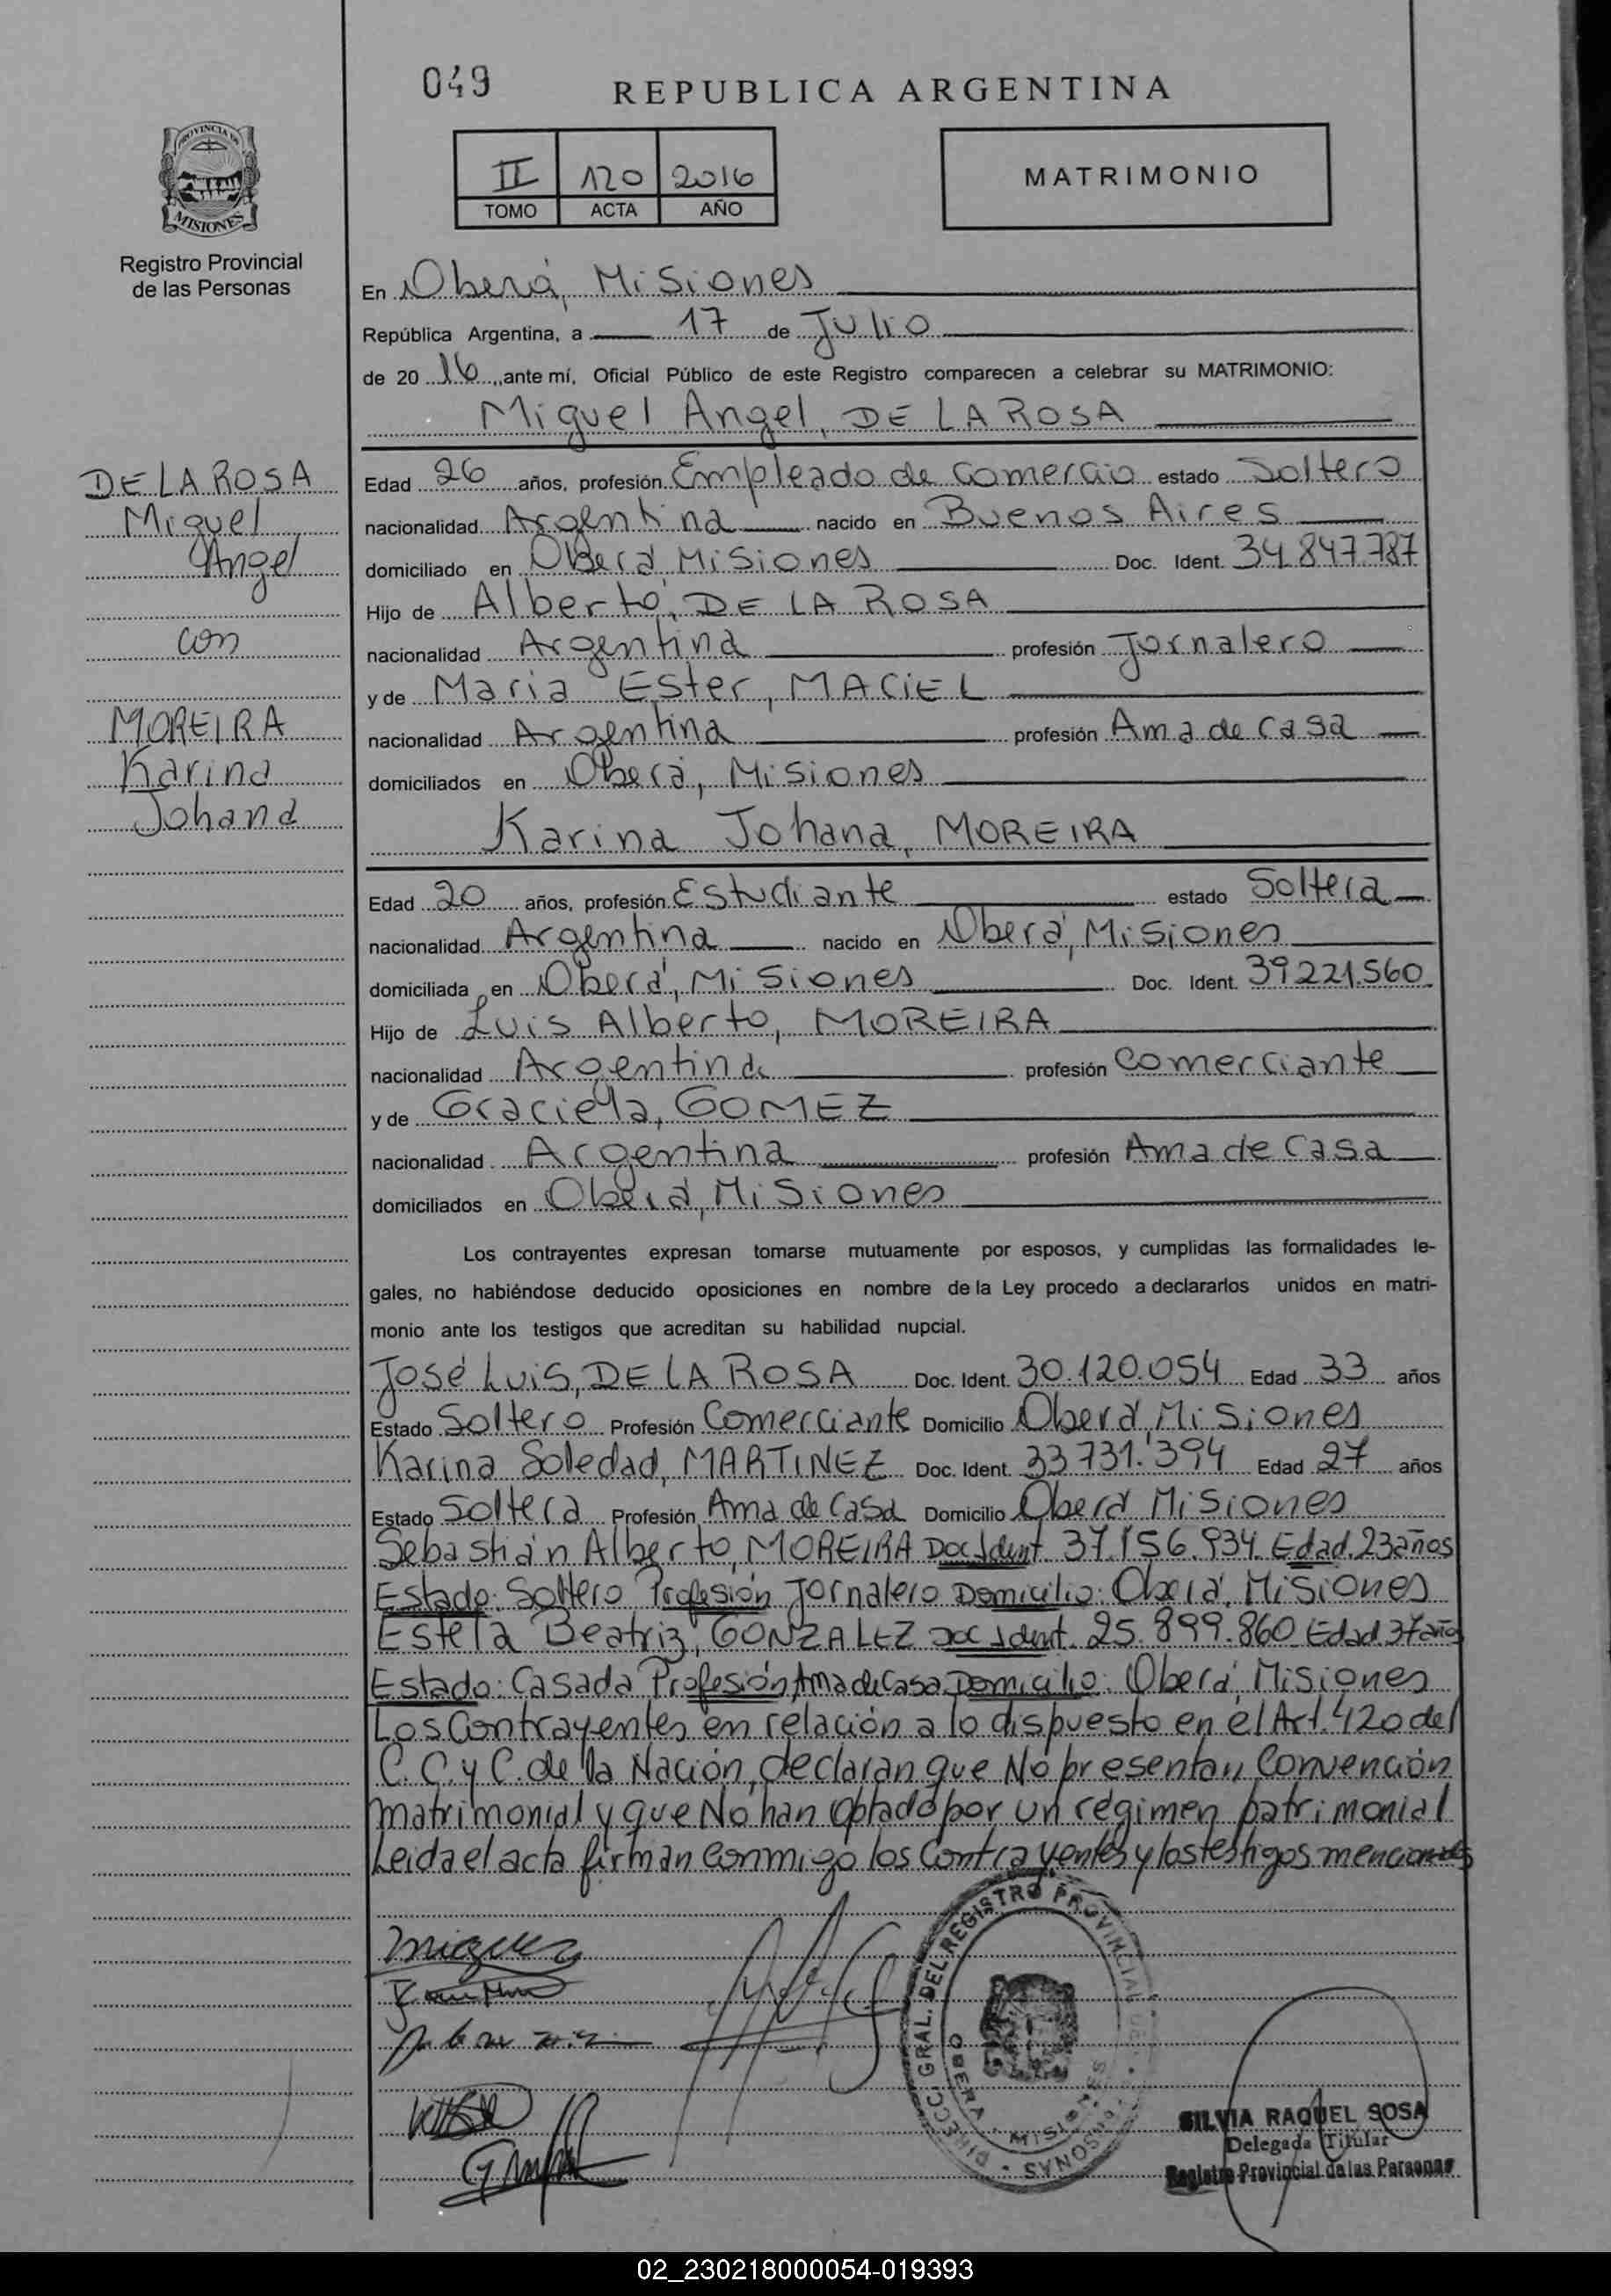 049
REPUBLICA ARGENTINA
II 120 2016
TOMO ACTA AÑO
MATRIMONIO
PROVINCIA DE
MISIONES
Registro Provincial
de las Personas
En Oberá, Misiones
República Argentina, a 17 de Julio
de 2016, ante mí, Oficial Público de este Registro comparecen a celebrar su MATRIMONIO:
Miguel Angel, DE LA ROSA
DE LA ROSA
Miguel
Angel
con
MOREIRA
Karina
Johana
Edad 26 años, profesión Empleado de Comercio estado Soltero
nacionalidad Argentina nacido en Buenos Aires
domiciliado en Oberá, Misiones Doc. Ident. 34.847.787
Hijo de Alberto, DE LA ROSA
nacionalidad Argentina profesión Jornalero
y de Maria Ester, MACIEL
nacionalidad Argentina profesión Ama de casa
domiciliados en Oberá, Misiones
Karina Johana, MOREIRA
Edad 20 años, profesión Estudiante estado Soltera
nacionalidad Argentina nacido en Oberá, Misiones
domiciliada en Oberá, Misiones Doc. Ident. 39.221.560
Hijo de Luis Alberto, MOREIRA
nacionalidad Argentina profesión Comerciante
y de Graciela, GOMEZ
nacionalidad Argentina profesión Ama de Casa
domiciliados en Oberá, Misiones
Los contrayentes expresan tomarse mutuamente por esposos, y cumplidas las formalidades le-
gales, no habiéndose deducido oposiciones en nombre de la Ley procedo a declararlos unidos en matri-
monio ante los testigos que acreditan su habilidad nupcial.
José Luis, DE LA ROSA Doc. Ident. 30.120.054 Edad 33 años
Estado Soltero Profesión Comerciante Domicilio Oberá, Misiones
Karina Soledad, MARTINEZ Doc. Ident. 33.731.394 Edad 27 años
Estado Soltera Profesión Ama de Casa Domicilio Oberá Misiones
Sebastián Alberto, MOREIRA Doc Ident. 37.156.934 Edad 23 años
Estado: Soltero Profesión Jornalero Domicilio: Oberá, Misiones
Estela Beatriz, GONZALEZ Doc Ident. 25.899.860 Edad 37 años
Estado: Casada Profesión Ama de Casa Domicilio: Oberá, Misiones
Los Contrayentes en relación a lo dispuesto en el Art. 420 del
C.C. y C. de la Nación, declaran que No presentan Convención
matrimonial y que No han optado por un régimen patrimonial
Leida el acta firman conmigo los Contrayentes y los testigos mencionados
DIRECC. GRAL. DEL REGISTRO PROVINCIAL DE LAS PERSONAS
OBERA MISIONES
SILVIA RAQUEL SOSA
Delegada Titular
Registro Provincial de las Personas
02_230218000054-019393